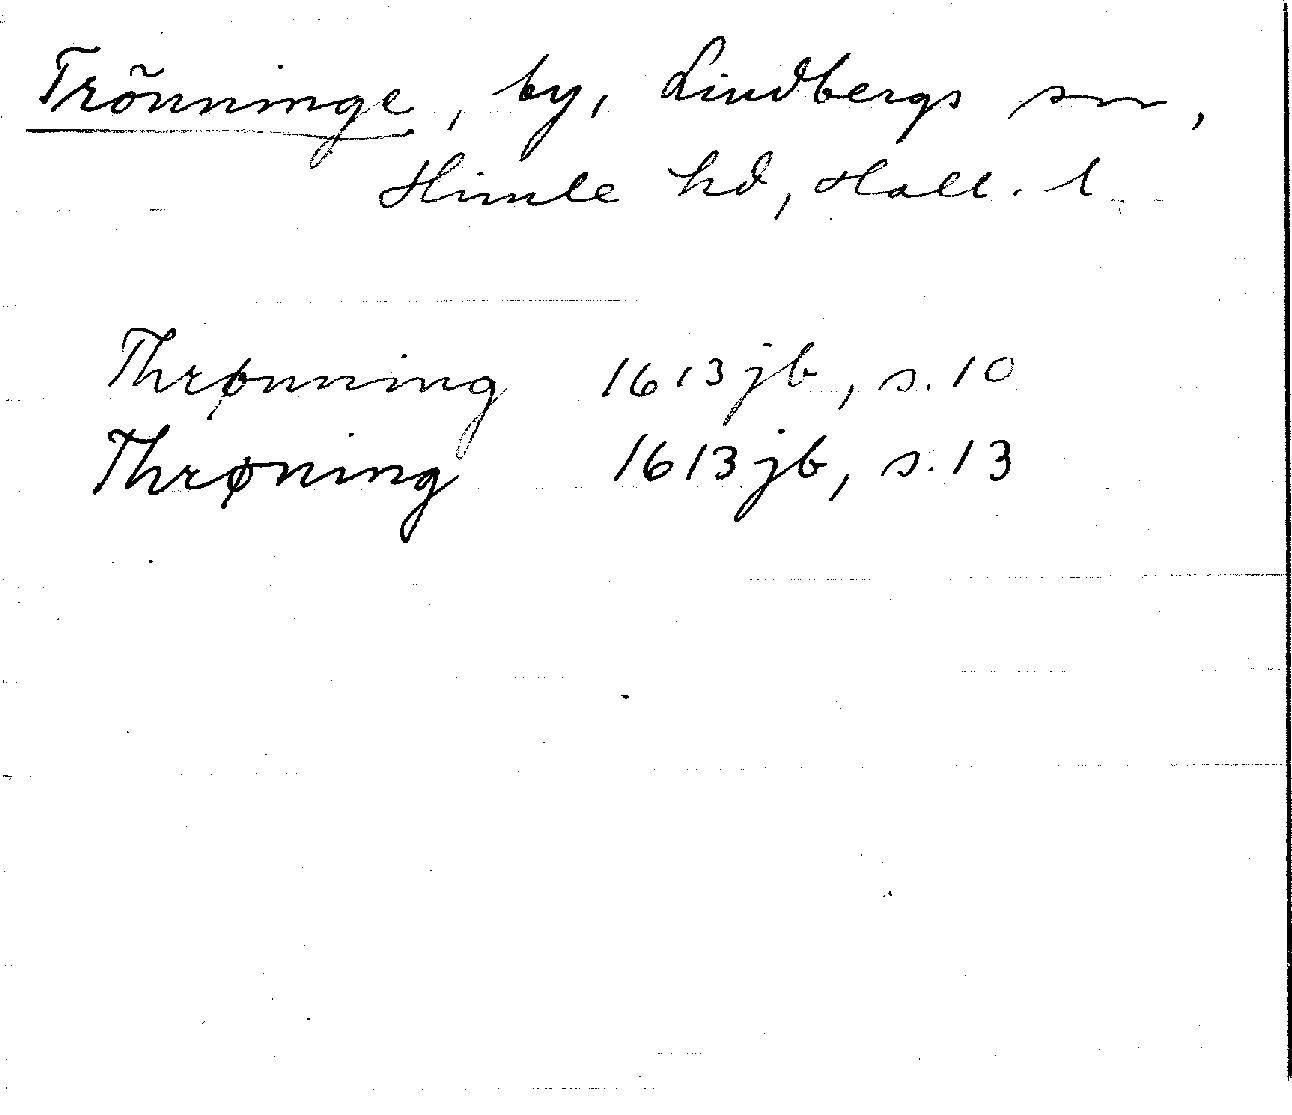 Trönninge, by, Lindbergs sn,
Himle hd, Hall. l
Thrønning 1613 jb, s. 10
Thrøning 1613 jb, s. 13